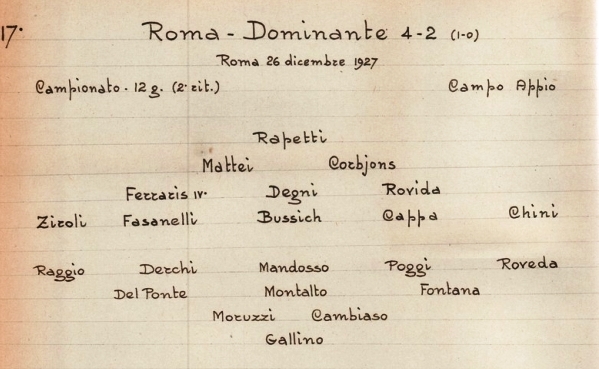 17.
Roma - Dominante 4-2 (1-0)
Roma 26 dicembre 1927
Campionato - 12 g. (2ª rit.) Campo Appio
Rapetti
Mattei Corbjons
Ferraris IV. Degni Rovida
Ziroli Fasanelli Bussich Cappa Chini
Raggio Derchi Mandosso Poggi Roveda
Del Ponte Montalto Fontana
Moruzzi Cambiaso
Gallino